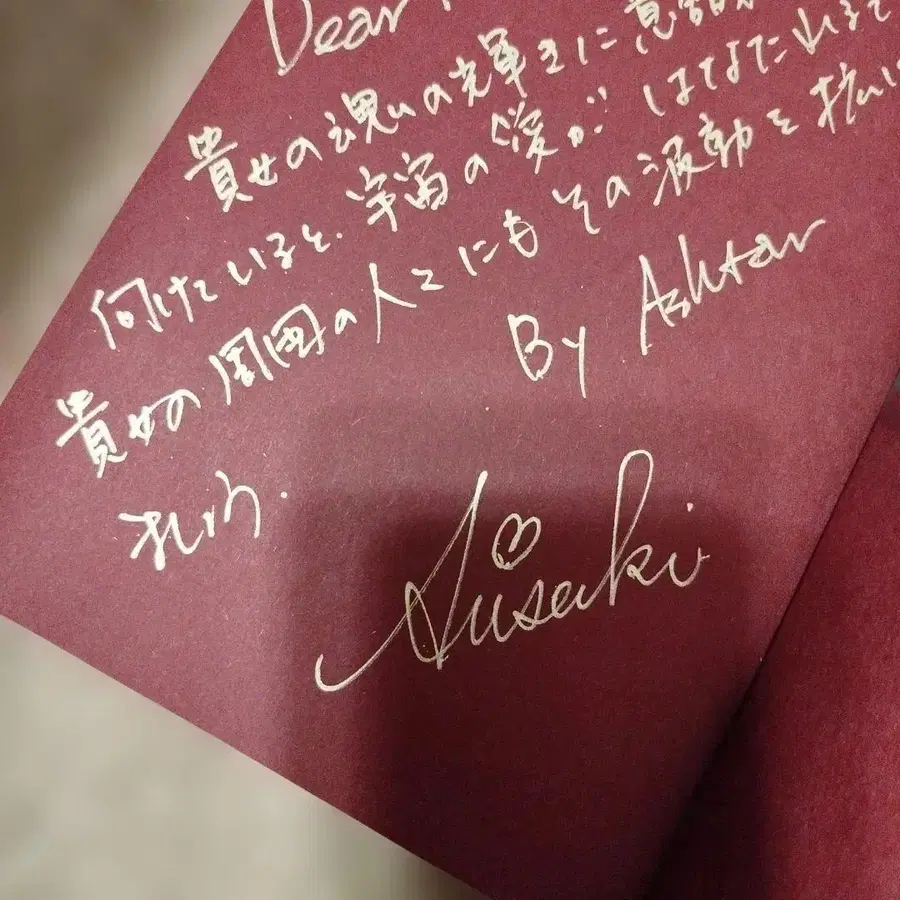 Dear
貴女の魂いの輝きに意識
向けていると、宇宙の愛が はなたれ
貴女の周囲の人々にもその波動を
By Ashtar